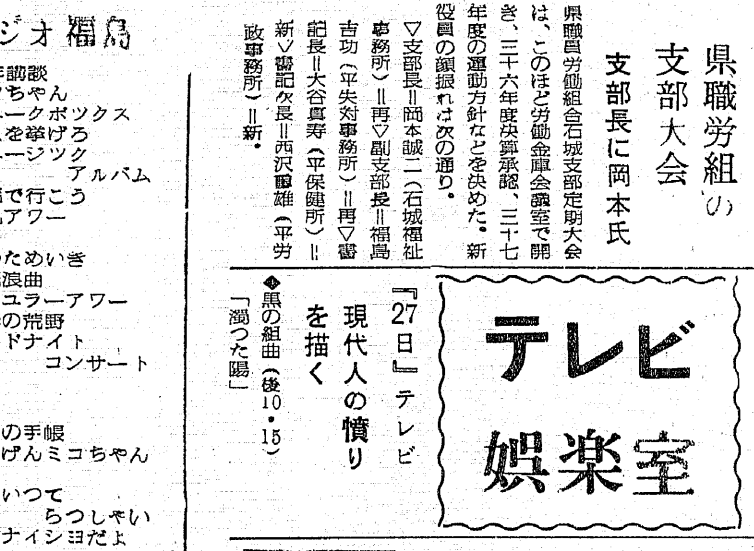 県職労組の
支部大会
支部長に岡本氏
県職員労働組合石城支部定期大会
は、このほど労働金庫会議室で開
き、三十六年度決算承認、三十七
年度の運動方針などを決めた。新
役員の顔振れは次の通り。
▽支部長＝岡本誠二（石城福祉
事務所）＝再▽副支部長＝福島
吉功（平失対事務所）＝再▽書
記長＝大谷真寿（平保健所）＝
新▽書記次長＝西沢 雄（平労
政事務所）＝新。
テレビ
娯楽室
『27日』テレビ
現代人の憤り
を描く
◆黒の組曲（後10・15）
「濁つた陽」
ジオ福島
講談
ちやん
ークボックス
を挙げろ
ージツク
アルバム
で行こう
アワー
ためいき
浪曲
ユラーアワー
の荒野
ドナイト
コンサート
の手帳
げんミコちやん
いつて
らつしやい
ナイシヨだよ